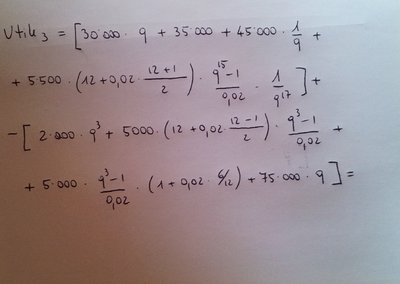 Utile₃ = [30˙000 · q + 35˙000 + 45˙000 · 1/q +
+ 5˙500 · (12 + 0,02 · (12+1)/2) · (q¹⁵-1)/0,02 · 1/q¹⁷] +
-[ 2˙000 · q³ + 5000 · (12 + 0,02 · (12-1)/2) · (q³-1)/0,02 +
+ 5˙000 · (q³-1)/0,02 · (1 + 0,02 · 6/12) + 75˙000 · q ] =